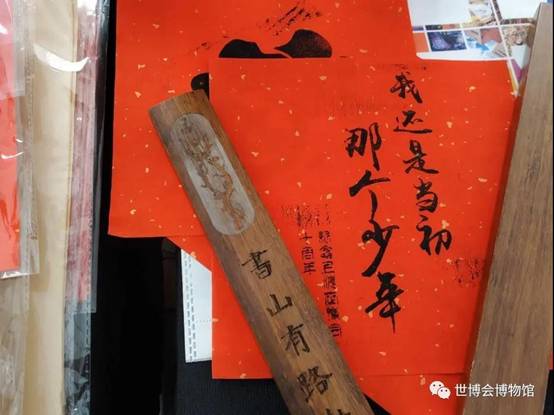 我还是当初
那个少年
十周年
書山有路
世博会博物馆